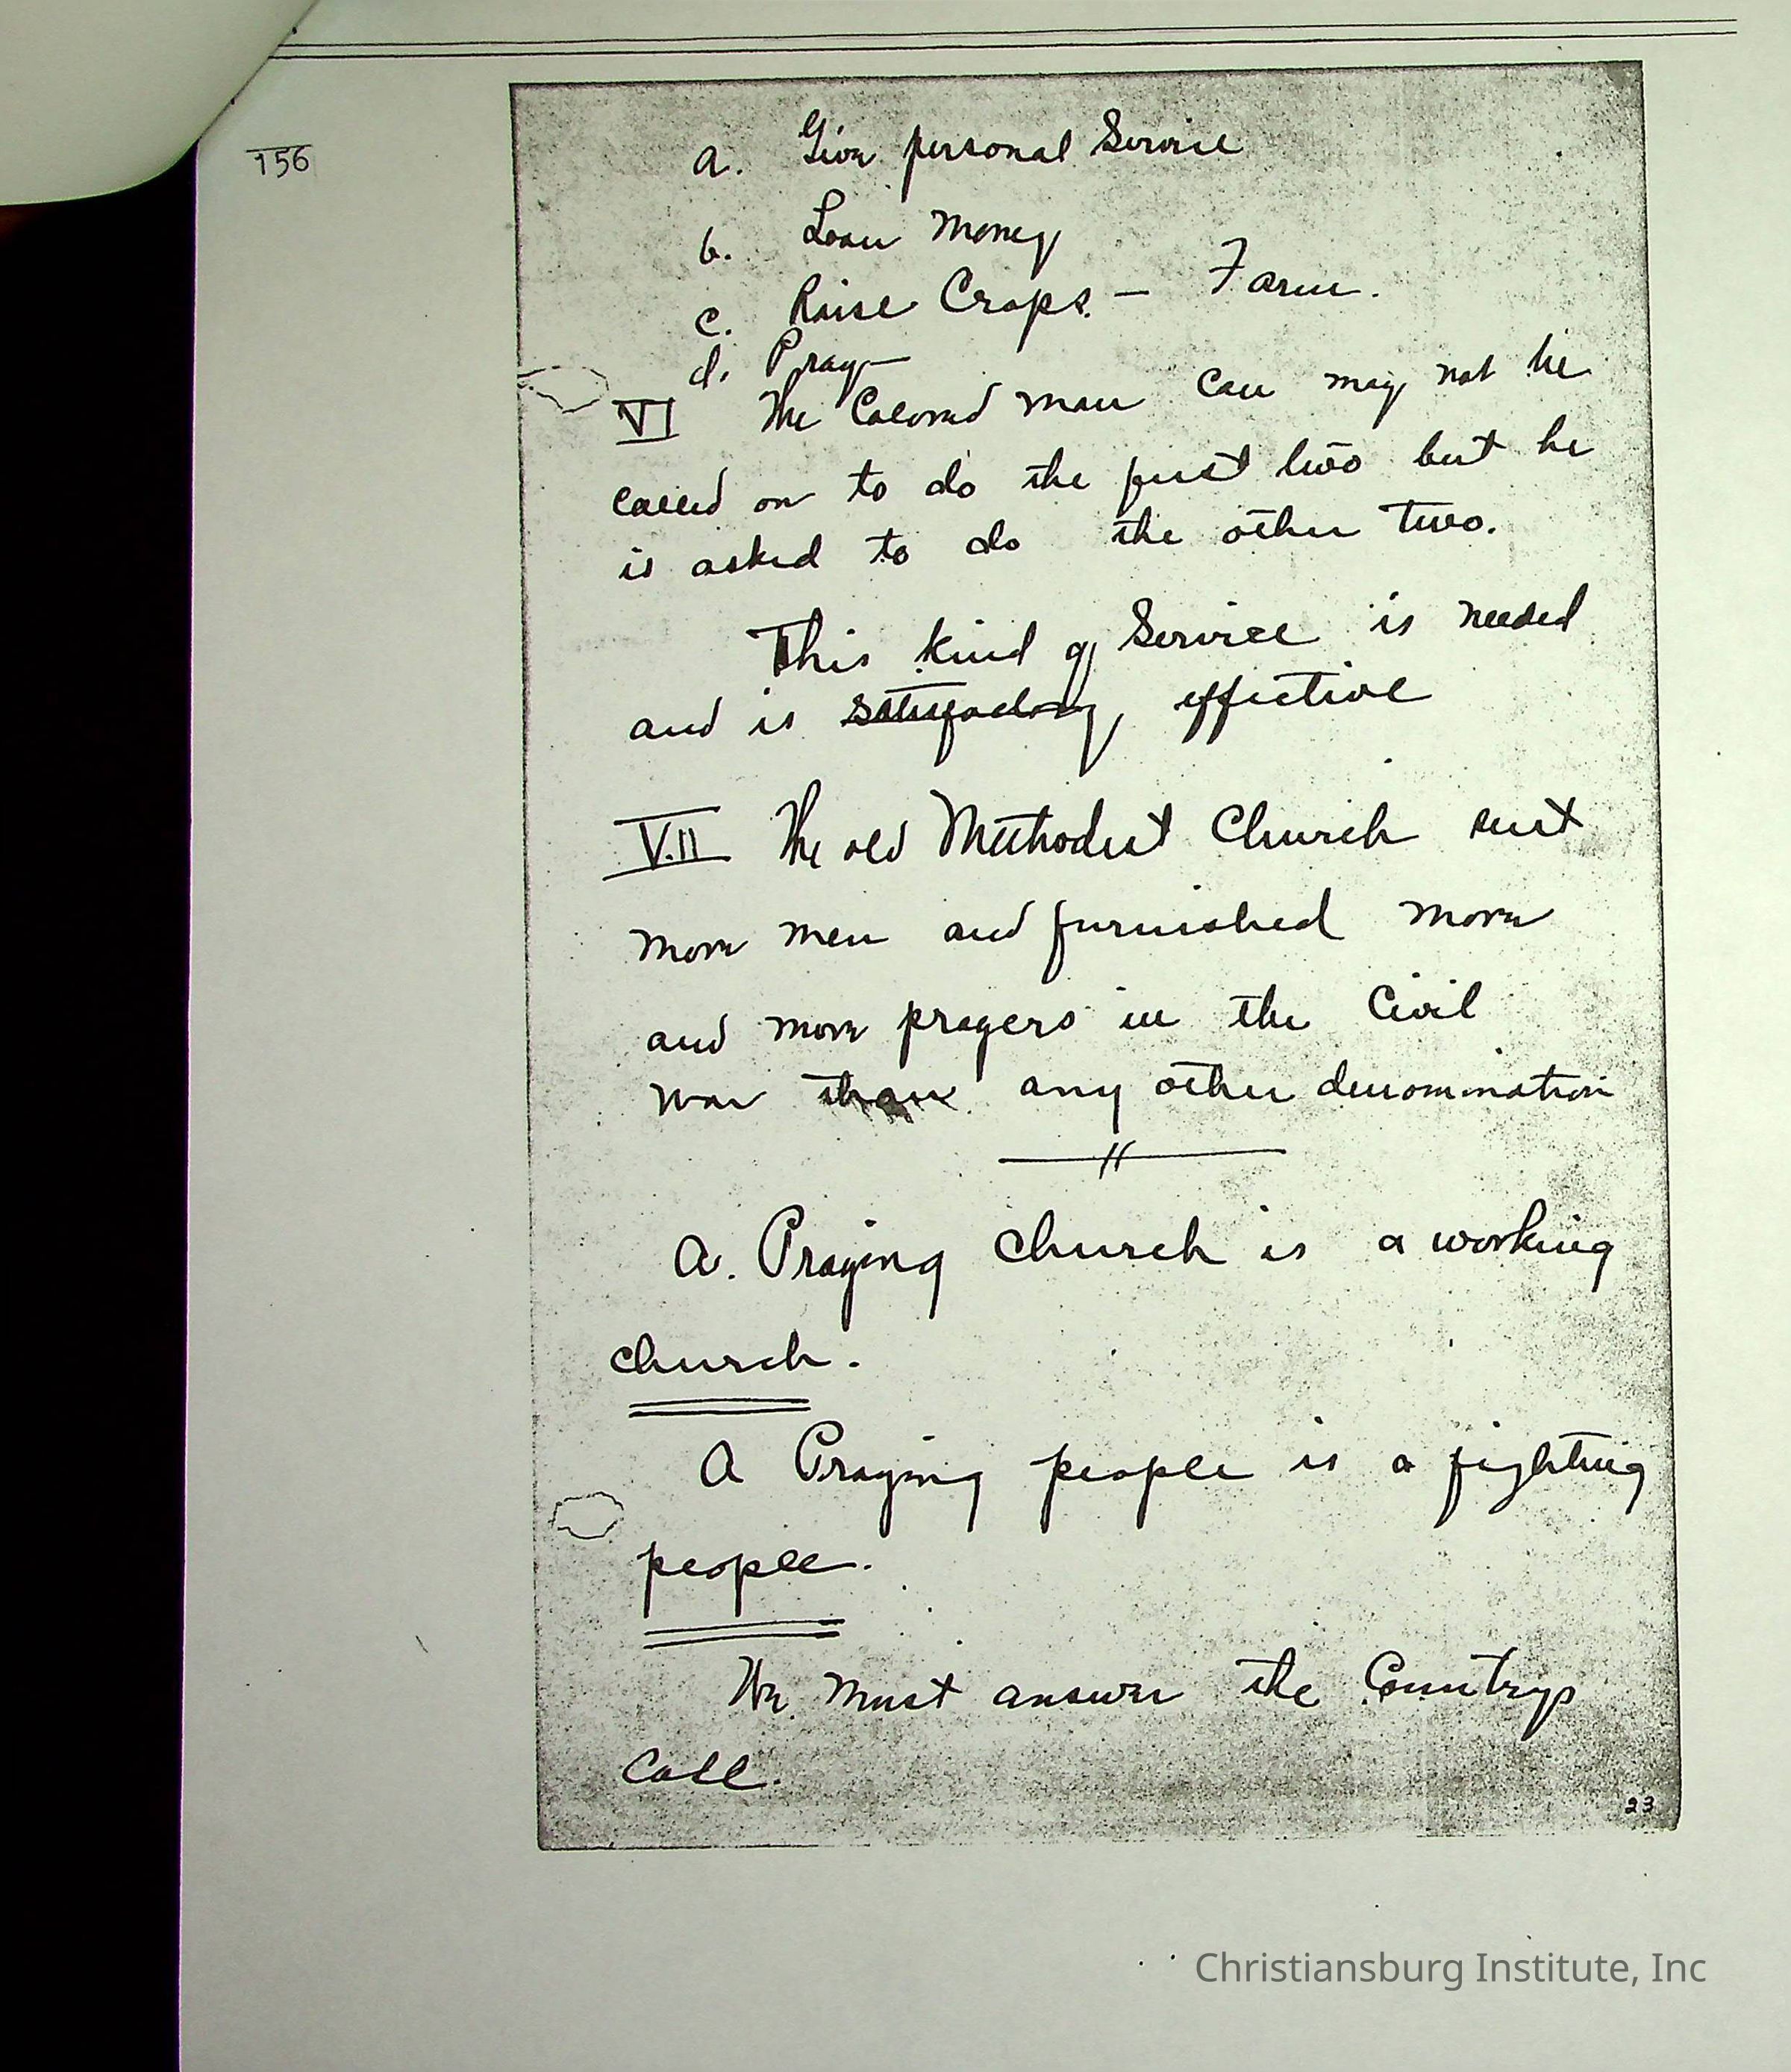 156
a. Give personal Service
b. Loan Money
c. Raise Crops. — Farm.
d. Pray—
VI The Colored man can may not be
called on to do the first two but he
is asked to do the other two.
This kind of Service is needed
and is satisfactory, effective
VII The old Methodist Church sent
more men and furnished more
and more prayers in the Civil
war than any other denomination
a. Praying church is a working
church.
A Praying people is a fighting
people.
We must answer the Countrys
Call.
23
Christiansburg Institute, Inc